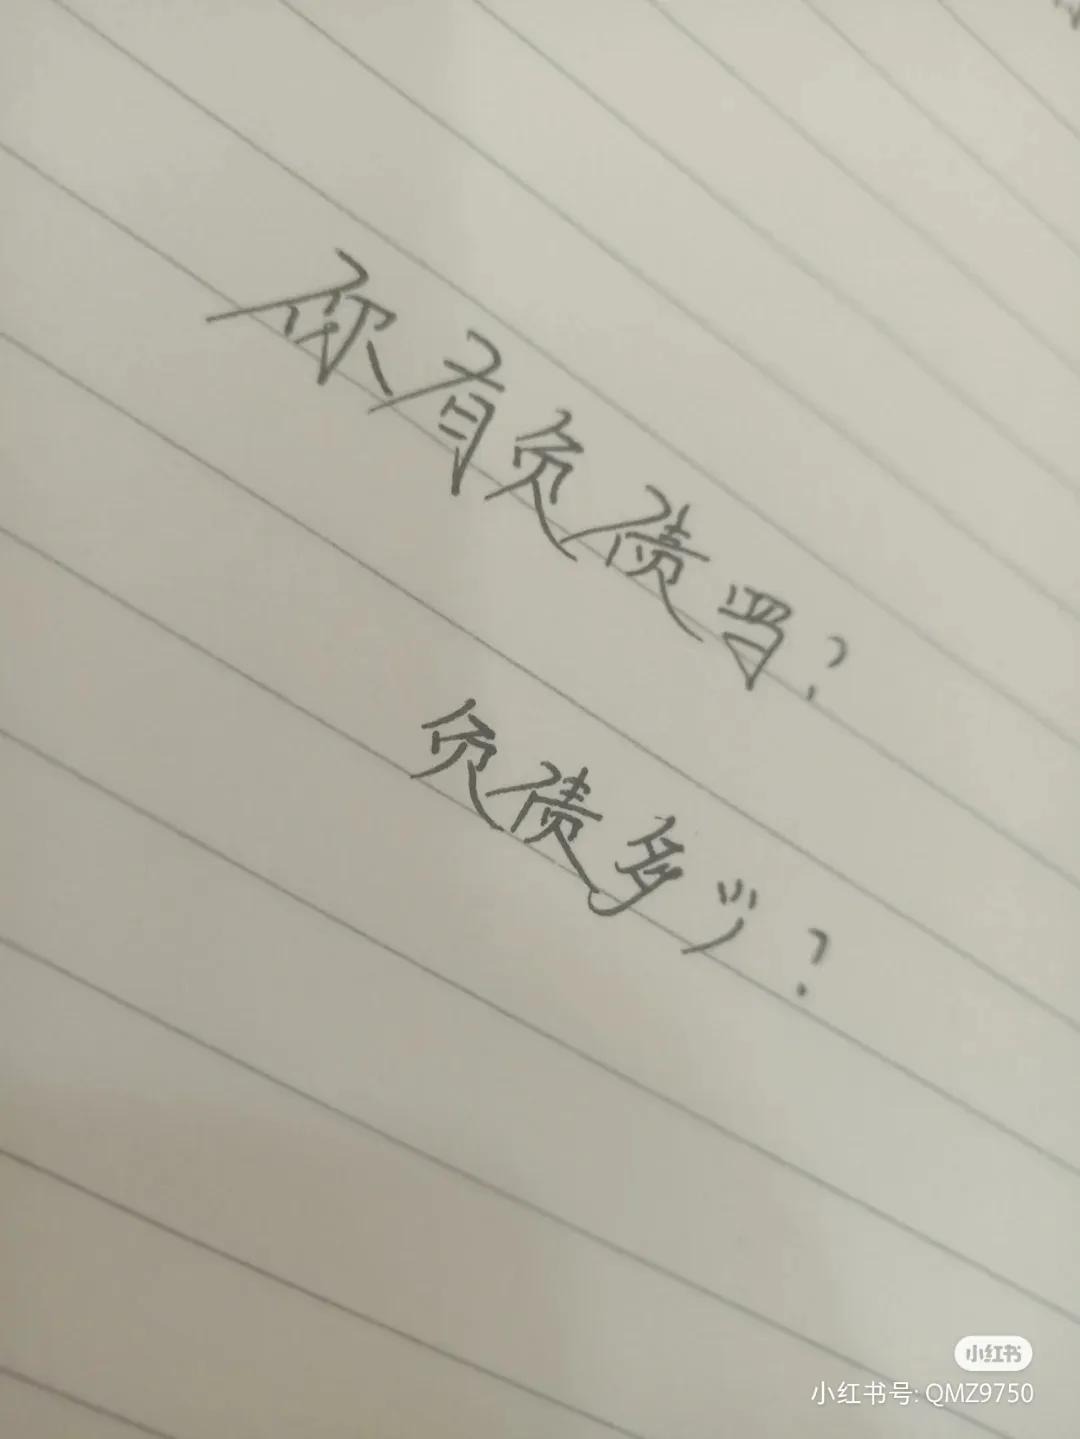 你有负债吗?
负债多少?
小红书
小红书号: QMZ9750